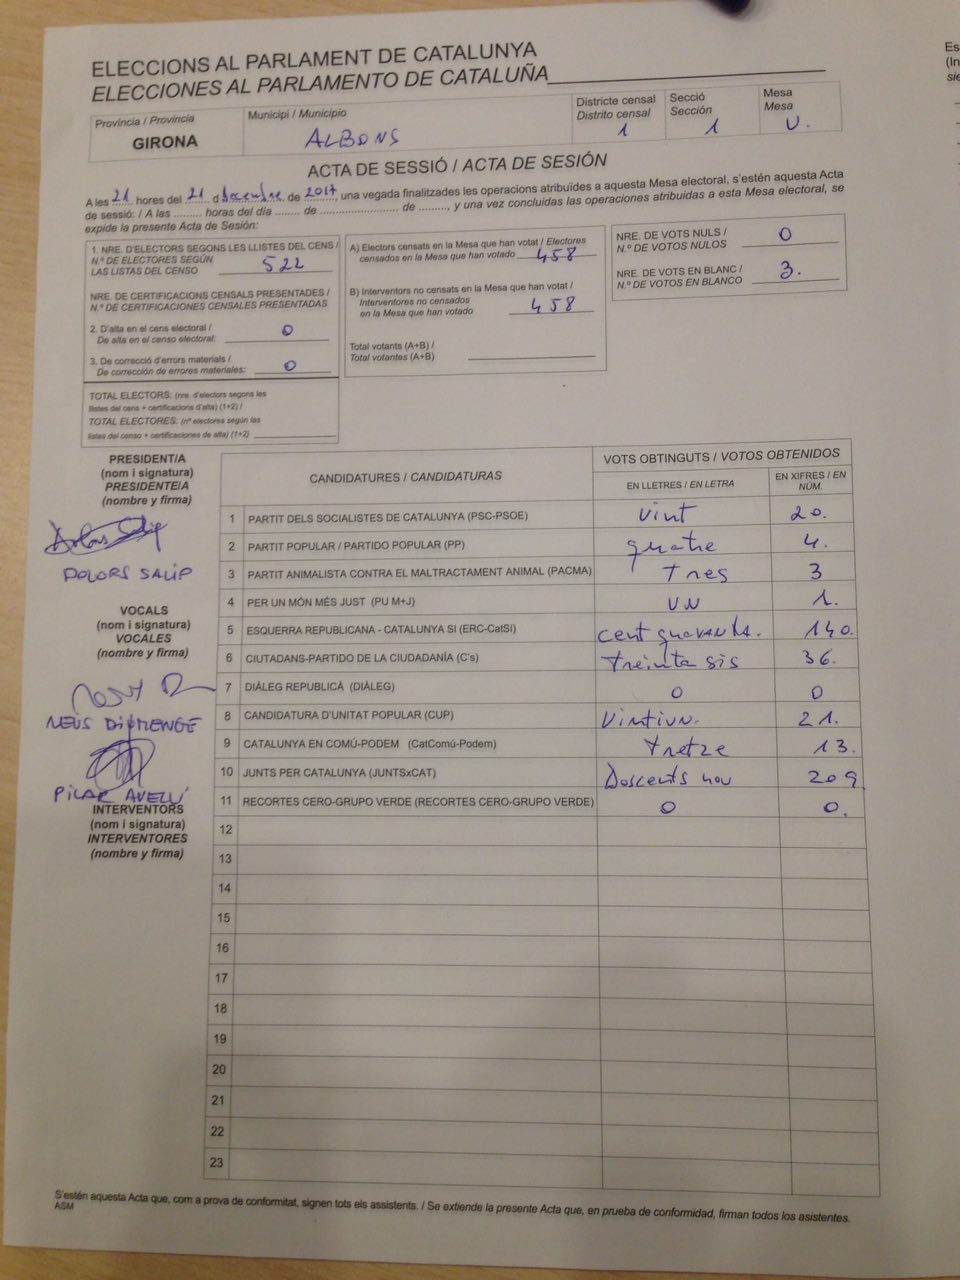 ELECCIONS AL PARLAMENT DE CATALUNYA
ELECCIONES AL PARLAMENTO DE CATALUÑA
Província / Provincia
GIRONA
Municipi / Municipio
ALBONS
Districte censal
Distrito censal
1
Secció
Sección
1
Mesa
Mesa
U.
ACTA DE SESSIÓ / ACTA DE SESIÓN
A les 21 hores del 21 d desembre de 2017, una vegada finalitzades les operacions atribuïdes a aquesta Mesa electoral, s'estén aquesta Acta
de sessió: / A las ......... horas del día ........ de ......................... de ........, y una vez concluidas las operaciones atribuidas a esta Mesa electoral, se
expide la presente Acta de Sesión:
1. NRE. D'ELECTORS SEGONS LES LLISTES DEL CENS /
N.º DE ELECTORES SEGÚN
LAS LISTAS DEL CENSO 522
NRE. DE CERTIFICACIONS CENSALS PRESENTADES /
N.º DE CERTIFICACIONES CENSALES PRESENTADAS
2. D'alta en el cens electoral /
De alta en el censo electoral: 0
3. De correcció d'errors materials /
De corrección de errores materiales: 0
TOTAL ELECTORS: (nre. d'electors segons les
llistes del cens + certificacions d'alta) (1+2) /
TOTAL ELECTORES: (nº electores según las
listas del censo + certificaciones de alta) (1+2)
A) Electors censats en la Mesa que han votat / Electores
censados en la Mesa que han votado 458
B) Interventors no censats en la Mesa que han votat /
Interventores no censados
en la Mesa que han votado 458
Total votants (A+B) /
Total votantes (A+B)
NRE. DE VOTS NULS /
N.º DE VOTOS NULOS 0
NRE. DE VOTS EN BLANC /
N.º DE VOTOS EN BLANCO 3.
PRESIDENT/A
(nom i signatura)
PRESIDENTE/A
(nombre y firma)
DOLORS SALIP
VOCALS
(nom i signatura)
VOCALES
(nombre y firma)
NEUS
PILAR AVELLÍ
INTERVENTORS
(nom i signatura)
INTERVENTORES
(nombre y firma)
CANDIDATURES / CANDIDATURAS
VOTS OBTINGUTS / VOTOS OBTENIDOS
EN LLETRES / EN LETRA
EN XIFRES / EN
NÚM.
1 PARTIT DELS SOCIALISTES DE CATALUNYA (PSC-PSOE) vint 20.
2 PARTIT POPULAR / PARTIDO POPULAR (PP) quatre 4.
3 PARTIT ANIMALISTA CONTRA EL MALTRACTAMENT ANIMAL (PACMA) tres 3
4 PER UN MÓN MÉS JUST (PU M+J) UN 1.
5 ESQUERRA REPUBLICANA - CATALUNYA SI (ERC-CatSí) cent quaranta. 140.
6 CIUTADANS-PARTIDO DE LA CIUDADANÍA (C's) treinta sis 36.
7 DIÀLEG REPUBLICÀ (DIÀLEG) 0 0
8 CANDIDATURA D'UNITAT POPULAR (CUP) Vintiun. 21.
9 CATALUNYA EN COMÚ-PODEM (CatComú-Podem) tretze 13.
10 JUNTS PER CATALUNYA (JUNTSxCAT) Doscents nou 209
11 RECORTES CERO-GRUPO VERDE (RECORTES CERO-GRUPO VERDE) 0 0.
12
13
14
15
16
17
18
19
20
21
22
23
S'estén aquesta Acta que, com a prova de conformitat, signen tots els assistents. / Se extiende la presente Acta que, en prueba de conformidad, firman todos los asistentes.
ASM
Es
(In
sie